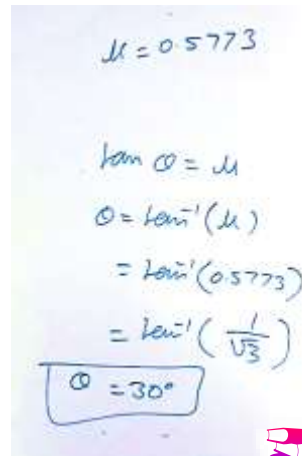 μ = 0.5773
tan θ = μ
θ = tan⁻¹(μ)
= tan⁻¹(0.5773)
= tan⁻¹(1/√3)
θ = 30°